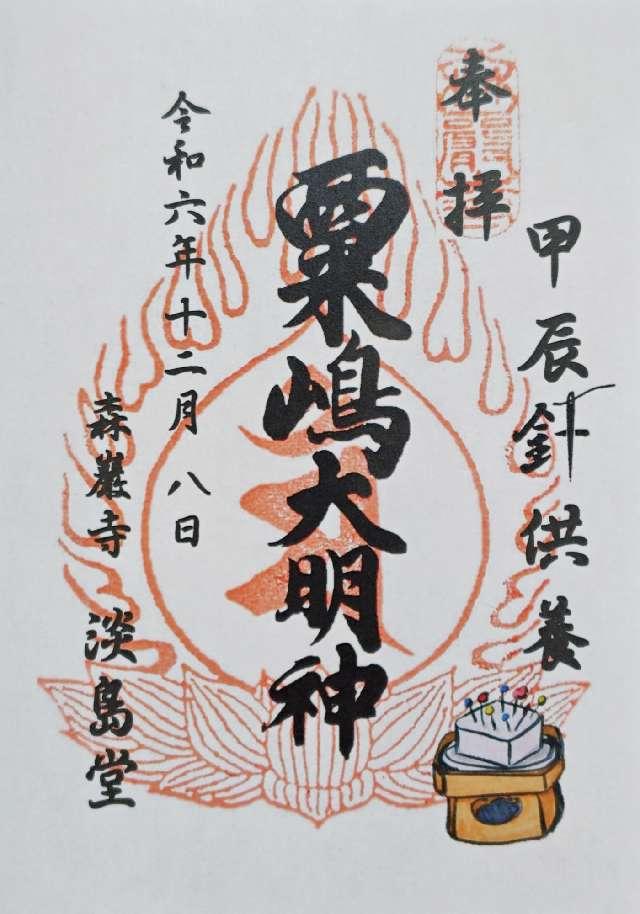 奉拝
甲辰針供養
粟嶋大明神
令和六年十二月八日
森巖寺 淡島堂